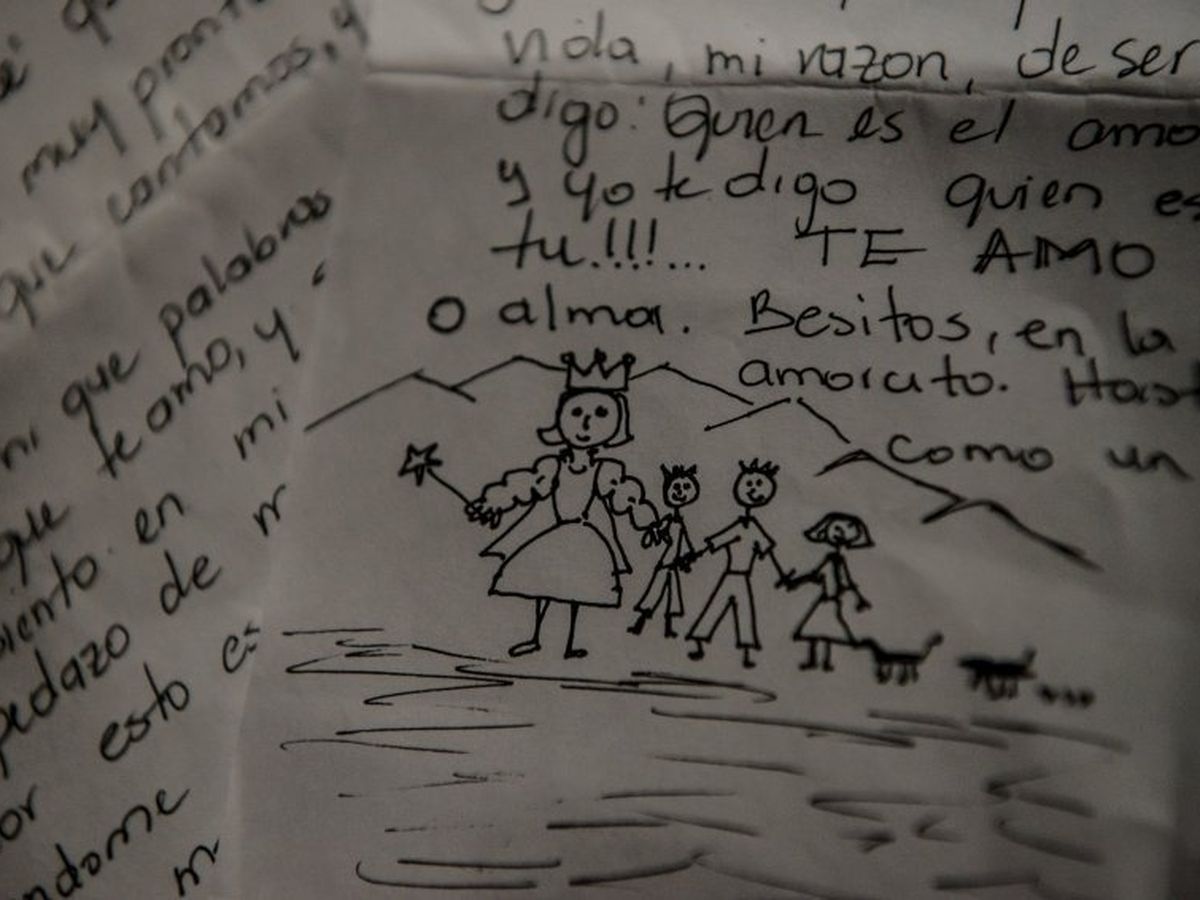 muy pront
que contamos, y
ni que palabras
que te amo, y
mi
en
pedazo de
esto es
vida, mi razon, de ser
digo: Quien es el amo
y yo te digo quien es
tu!!!... TE AMO
o alma. Besitos, en la
amorcito. Hast
como un